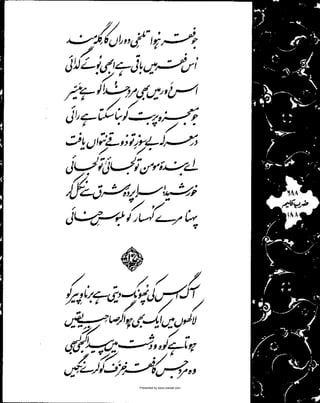 جو فقر ہوا تلخیِ دوراں کا گلہ مند
اس فقر میں باقی ہے ابھی بوئے گدائی
اس دور میں بھی مردِ خدا کو ہے میسّر
جو معجزہ پربت کو بنا سکتا ہے رائی
در معرکہ بے سوزِ تو ذوقے نتواں یافت
اے بندۂ مومن تو کجائی، تو کجائی
خورشید! سرا پردۂ مشرق سے نکل کر
پہنا مرے کہسار کو ملبوسِ حنائی
آگ اس کی پھونک دیتی ہے برنا و پیر کو
لاکھوں میں ایک بھی ہو اگر صاحبِ یقیں
ہوتا ہے کوہ و دشت میں پیدا کبھی کبھی
وہ مرد جس کا فقر خزف کو کرے نگیں
۶۸۸
ضربِ کلیم
۱۸۸